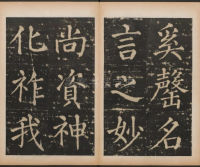 奚罄名
言之妙
尚資神
化祚我